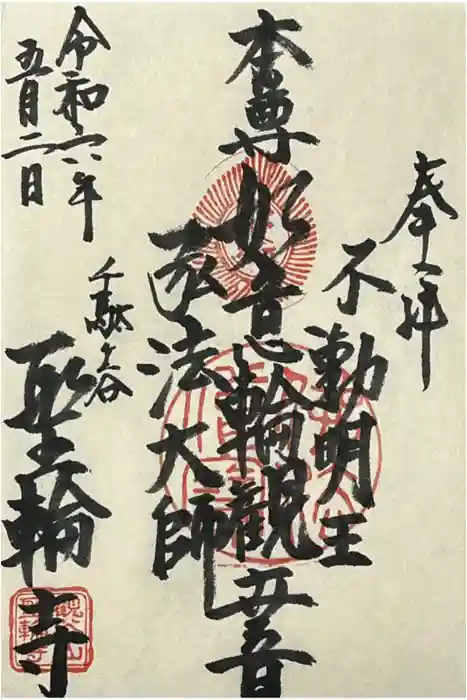 奉拝
不動明王
本尊如意輪観世音
弘法大師
令和六年
五月二日
千駄ヶ谷
聖輪寺